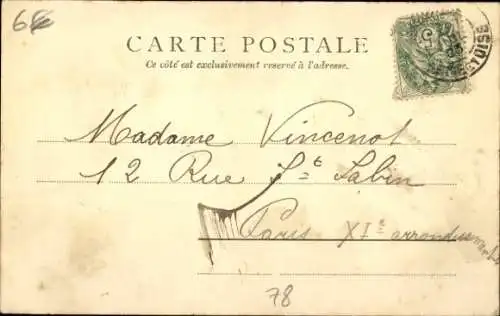 CARTE POSTALE
Ce côté est exclusivement reservé à l'adresse.
5
Madame Vincenot
12 Rue St Sabin
Paris XIe arrondissement
78